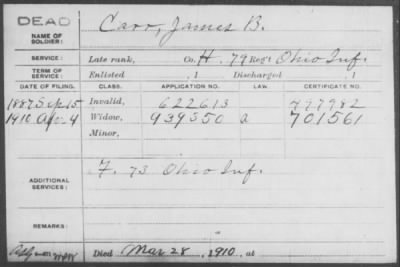 DEAD
NAME OF SOLDIER: Carr, James B.
SERVICE: Late rank, Co. H. 79 Reg't Ohio Inf.
TERM OF SERVICE: Enlisted , 1 Discharged , 1
DATE OF FILING. CLASS. APPLICATION NO. LAW. CERTIFICATE NO.
1887 Sep 15 Invalid, 622613 497982
1910 Apr 4 Widow, 939550 a 701561
Minor,
ADDITIONAL SERVICES: F. 73 Ohio Inf.
REMARKS:
Died Mar 28, 1910, at